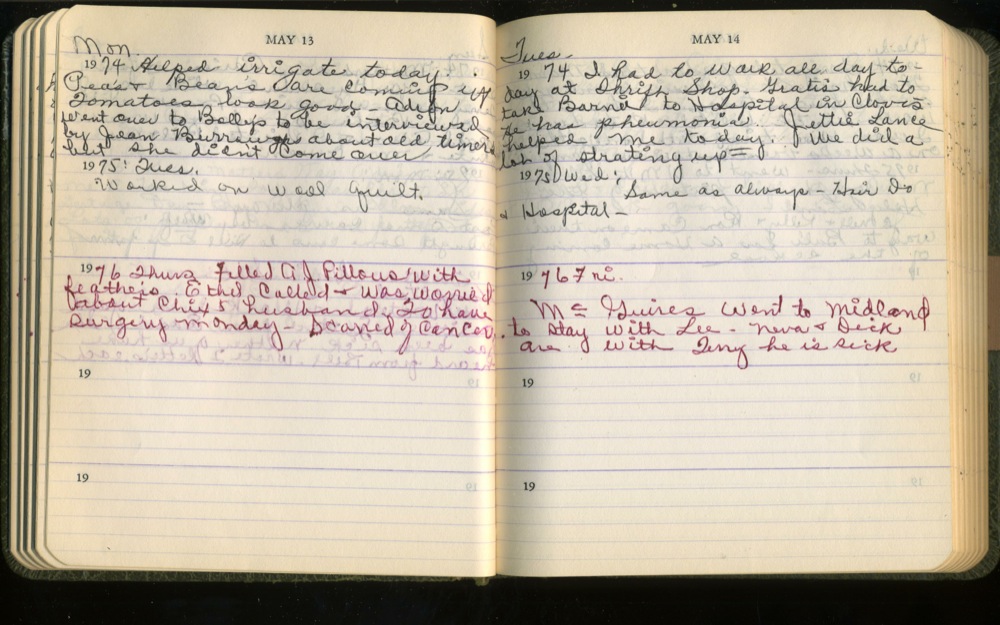 MAY 13
Mon.
1974 Helped irrigate today.
Peas & Beans are coming up
Tomatoes look good -
went over to Bettys to be interviewed
by Jean about old timers
but she didnt come over
1975: Tues.
Worked on wool quilt.
1976 Thurs Filled A J Pillows with
feathers. Ethel called & was worried
about husband. To have
surgery monday - Scared of Cancer.
19
19
MAY 14
Tues.
1974 I had to work all day to-
day at Thrift Shop. Gratis had to
take Barnie to Hospital in Clovis
he has pneumonia. Jettie Lance
helped me today. We did a
lot of strating up=
1975 Wed:
Same as always - Hair Do
& Hospital -
1976 Fri.
Mc Guires went to Midland
to stay with Lee - Neva & Dick
are with Terry he is sick
19
19